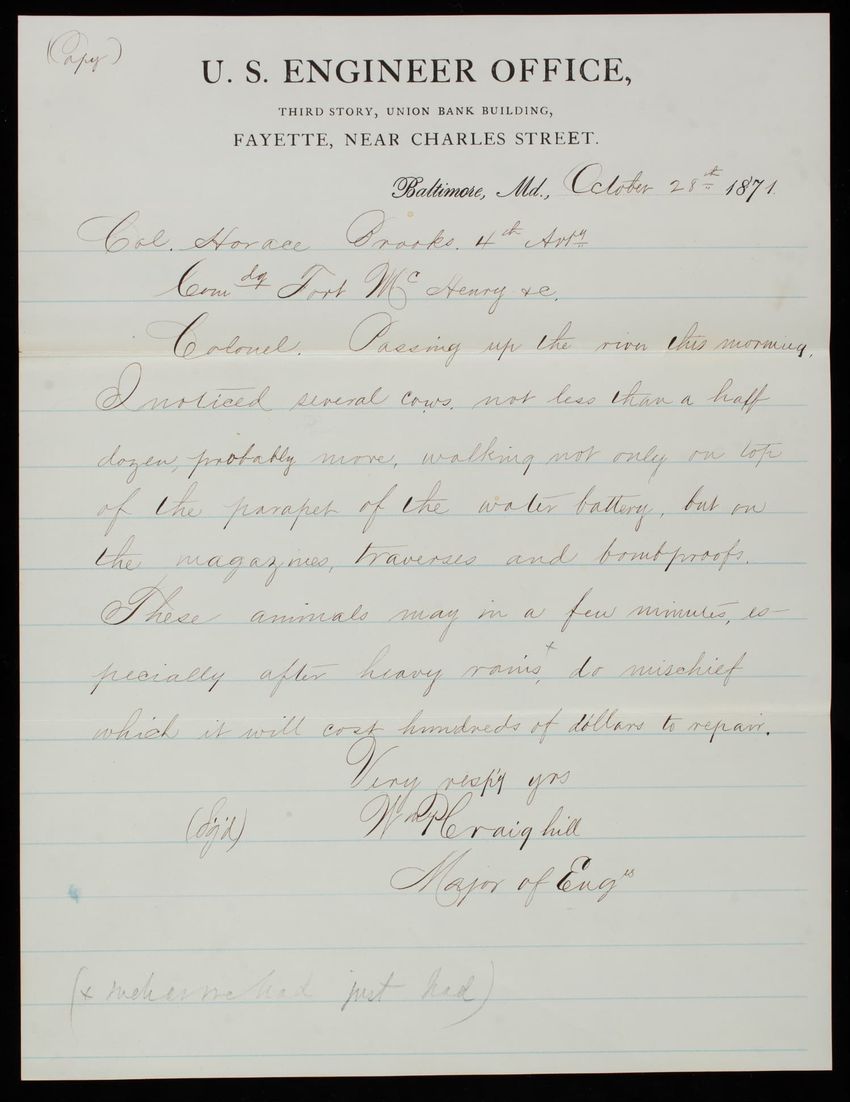 (Copy)
U. S. ENGINEER OFFICE,
THIRD STORY, UNION BANK BUILDING,
FAYETTE, NEAR CHARLES STREET.
Baltimore, Md., October 28th 1871.
Col. Horace Brooks. 4th Arty
Comdg Fort McHenry &c.
Colonel. Passing up the river this morning,
I noticed several cows, not less than a half
dozen, probably more, walking not only on top
of the parapet of the water battery, but on
the magazines, traverses and bombproofs.
These animals may in a few minutes, es-
pecially after heavy rains,+ do mischief
which it will cost hundreds of dollars to repair.
Very resp'y yrs
(Sig'd) Wm P Craighill
Major of Engrs
(+ such as we had just had)